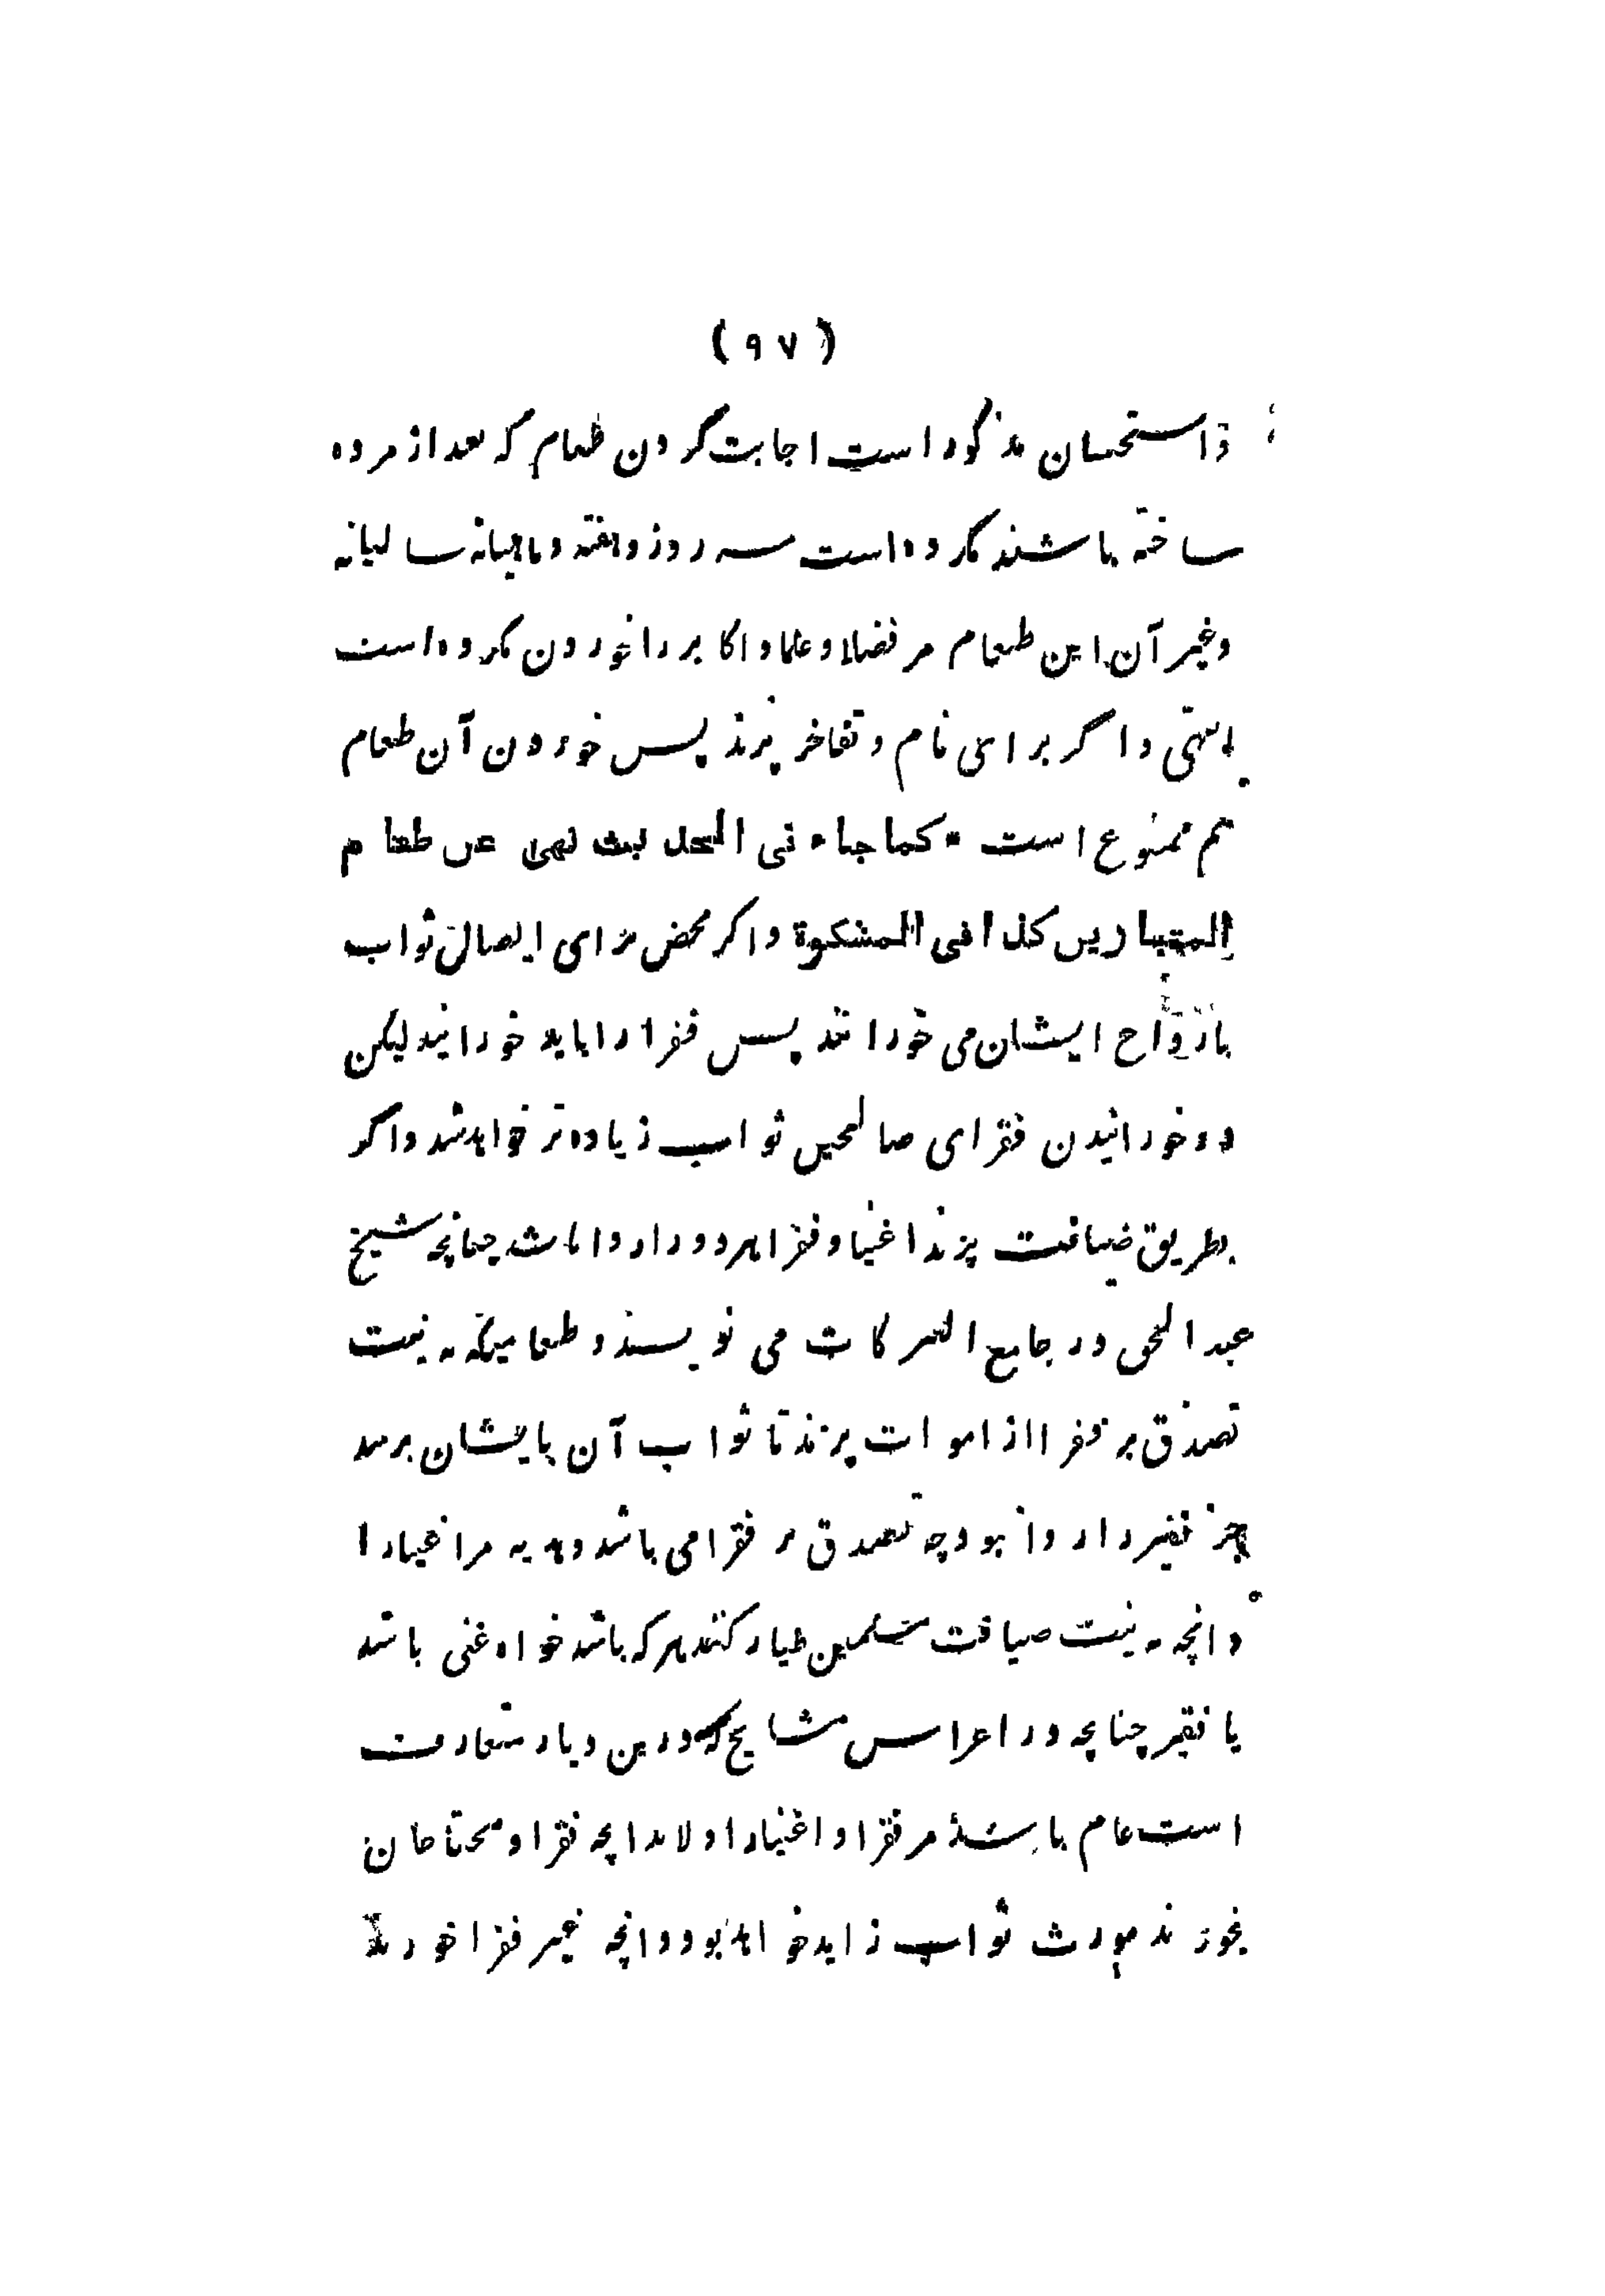 (۹۷)
و استحسان مذکور است اجابت کردن طعام که بعد از مرده
ساخته باشند مکروه است سه روز و هفته و ماهیانه سالیانه
و غیر آن این طعام مر فضلا و علما و اکابر را خوردن مکروه است
انتهی و اگر برای نام و تفاخر پزند پس خوردن آن طعام
هم ممنوع است * کما جاء فی الحدیث نهی عن طعام
المتباریین کذا فی المشکوة و اگر محض برای ایصال ثواب
بارواح ایشان می خورانند پس فقرا را باید خورانید لیکن
در خورانیدن فقرای صالحین ثواب زیاده تر خواهد شد و اگر
بطریق ضیافت پزند اغنیا و فقرا هر دو را روا باشد چنانچه شیخ
عبد الحق در جامع البرکات می نویسند و طعامیکه به نیت
تصدق بر فقرا از اموات پزند تا ثواب آن بایشان برسد
جز فقیر را روا نبود چه تصدق بر فقرا می باشد و هدیه مر اغنیا را
و انچه به نیت ضیافت مسلمین طیار کنند هر که باشد خواه غنی باشد
یا فقیر چنانچه در اعراس مشایخ که درین دیار متعارف
است عام باشد مر فقرا و اغنیا را و لابد انچه فقرا و محتاجان
بخورند مورث ثواب زاید خواهد بود و انچه غیر فقرا خورند